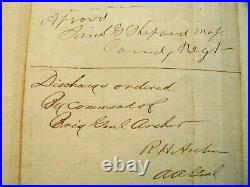 Aprovd
Saml G Shepard Maj
Comdg Regt
Discharge ordered
By command of
Brig Genl Archer
R H Archer
AA Genl